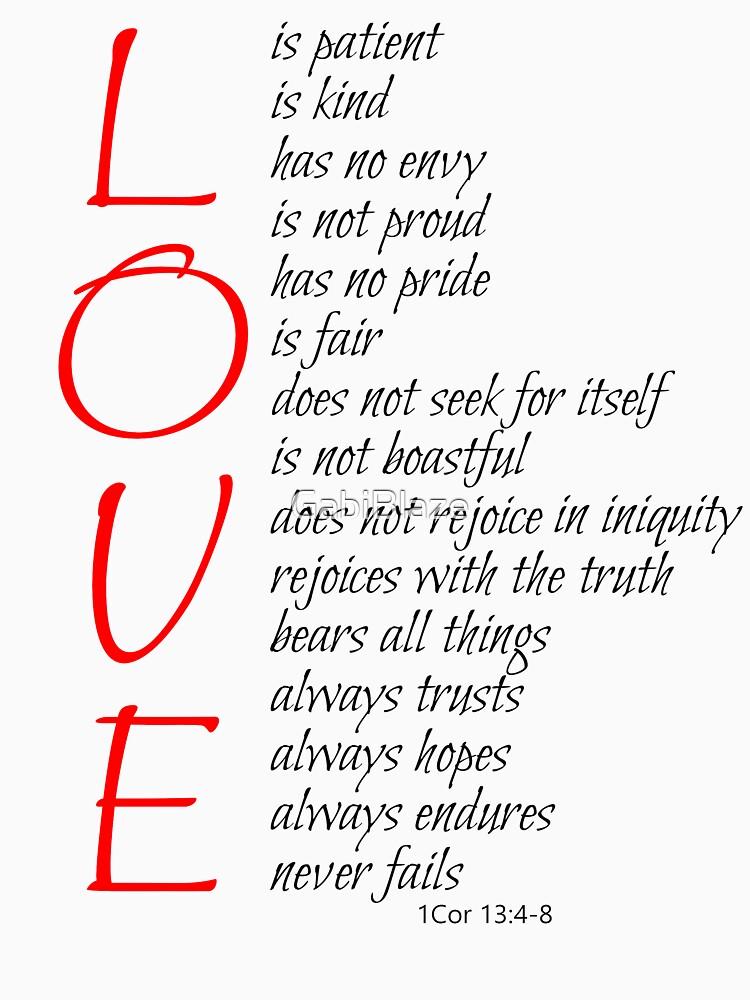 LOVE
is patient
is kind
has no envy
is not proud
has no pride
is fair
does not seek for itself
is not boastful
does not rejoice in iniquity
rejoices with the truth
bears all things
always trusts
always hopes
always endures
never fails
1Cor 13:4-8
GabiBlaze